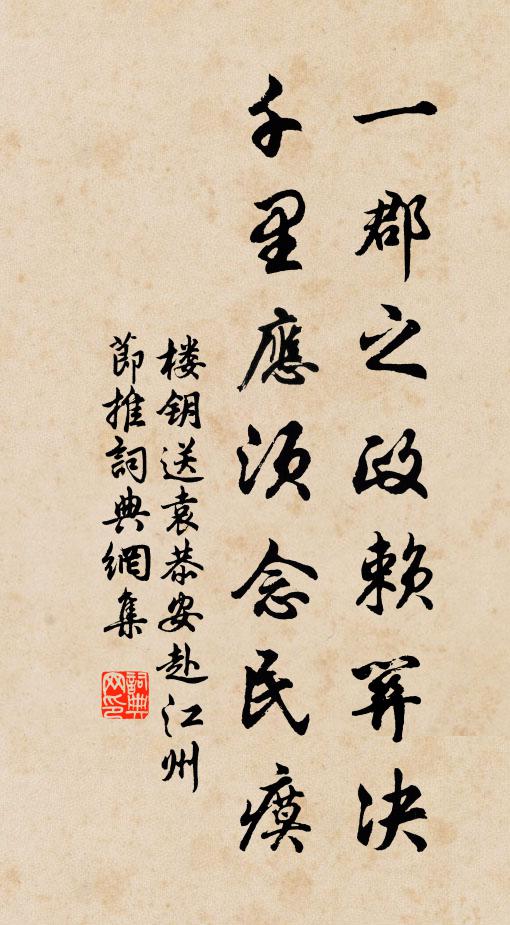 一郡之政賴羿决
千里應須念民瘼
楼钥送袁恭安赴江州
節推詞典網集
詞典网印